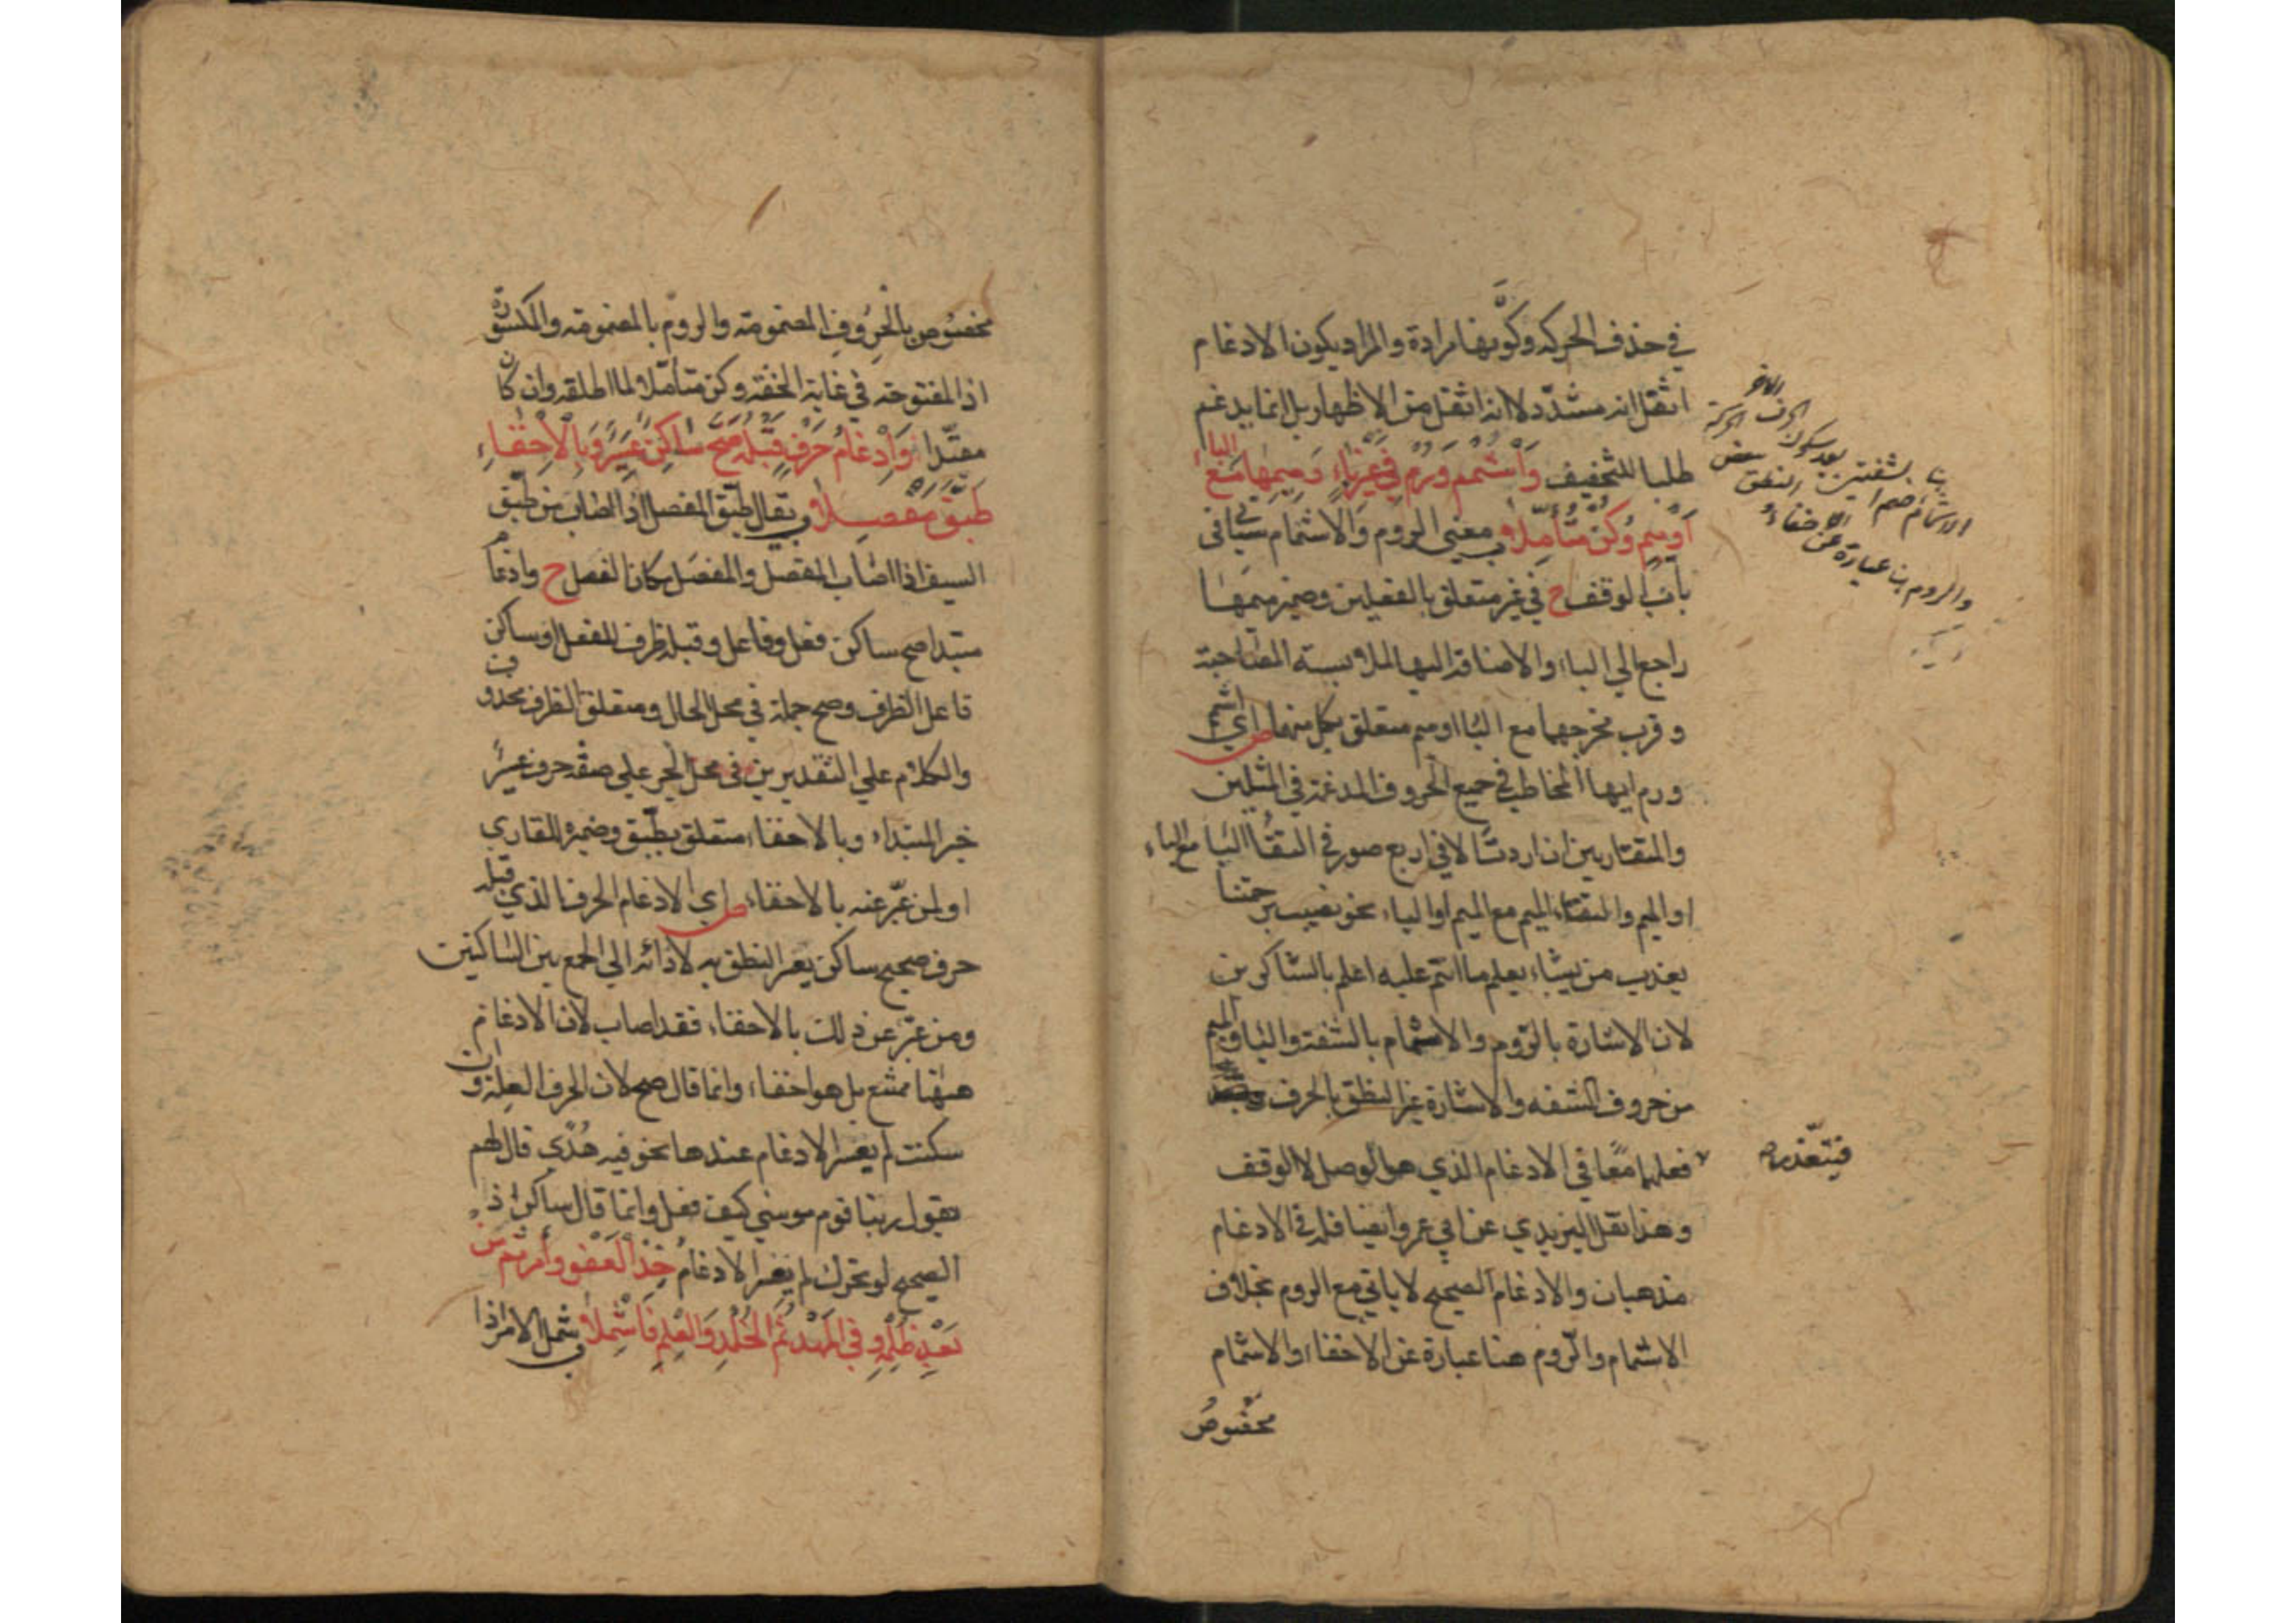 في حذف الحركه وكونها مرادة والمراد يكون الادغام
اثقل انه مشدد لا انه اثقل من الاظهار بل انما يدغم
طلبا للتخفيف وَأَشْمِمْ وَرُمْ فِي غَيْرِ بَاءٍ وَمِيمِهَا مَعَ الباء
أَوْ مِيمٍ وَكُنْ مُتَأَمِّلَا ب معني الروم والاشمام سياتي في
باب الوقف ح في غير متعلق بالفعلين وضمير ميمها
راجع الي الباء والاضافة اليها لملابسة المصاحبة
و قرب مخرجهما مع البا او ميم متعلق بكل منهما ص اي اشم
ورم ايها المخاطب في جميع الحروف المدغمة في المثلين
والمتقاربين ان اردت الا في اربع صور في التقا البا مع الباء
او الميم والتقاء الميم مع الميم او الباء نحو نصيب برحمتنا
يعذب من يشاء يعلم ما انتم عليه اعلم بالشاكرين
لان الاشارة بالروم والاشمام بالشفة والبا والميم
من حروف الشفه والاشارة غير النطق بالحرف
فعلهما معا في الادغام الذي هو الوصل لا الوقف
وهذا نقل اليزيدي عن ابي عمرو ايضا فله في الادغام
مذهبان والادغام الصحيح لا ياتي مع الروم بخلاف
الاشمام والروم هنا عبارة عن الاخفاء والاشمام
مخصوص
الاشمام ضم
بنا بشفتين بعد سكون الحرف الاخر
والروم بنا عبارة عن الاخفاء و النطق ببعض الحركة
فيتعذر
مخصوص بالحروف المضمومة والروم بالمضمومة والمكسورة
اذ المفتوحة في غاية الخفة وكن متأملا لما اطلقه وان كان
مقيدا وَإِدْغَامُ حَرْفٍ قَبْلَهُ صَحَّ سَاكِنٌ عَسِيرٌ وَبِالْإِخْفَاءِ
طَبَّقَ مَفْصِلَا ب يقال طبق المفصل اذا اصاب من طبق
السيف اذا اصاب المفصل والمفصل مكان الفصل ح وادغام
مبتدا صح ساكن فعل وفاعل وقبله ظرف للفعل او ساكن
فاعل الظرف وصح جملة في محل الحال ومتعلق الظرف محذوف
والكلام علي التقديرين في محل الجر علي صفة حرف عسير
خبر المبتداء وبالاخفاء متعلق بطبق وضميره للقاري
او لمن عبر عنه بالاخفاء ص اي الادغام الحرف الذي قبله
حرف صحيح ساكن يعسر النطق به لادائه الي الجمع بين الساكنين
ومن عبر عن ذلك بالاخفاء فقد اصاب لان الادغام
ههنا ممتنع بل هو اخفاء وانما قال صح لان الحرف العلة وان
سكنت لم يعسر الادغام عندها نحو فيه هدي قال لهم
يقول ربنا قوم موسي كيف فعل وانما قال ساكن اذ
الصحيح لو تحرك لم يعسر الادغام خُذِ الْعَفْوَ وَأْمُرْ ثُمَّ مِنْ
بَعْدِ ظُلْمِهِ وَفِي الْمَهْدِ ثُمَّ الْخُلْدِ وَالْعِلْمِ فَاشْمِلَا ب شمل الامر اذا